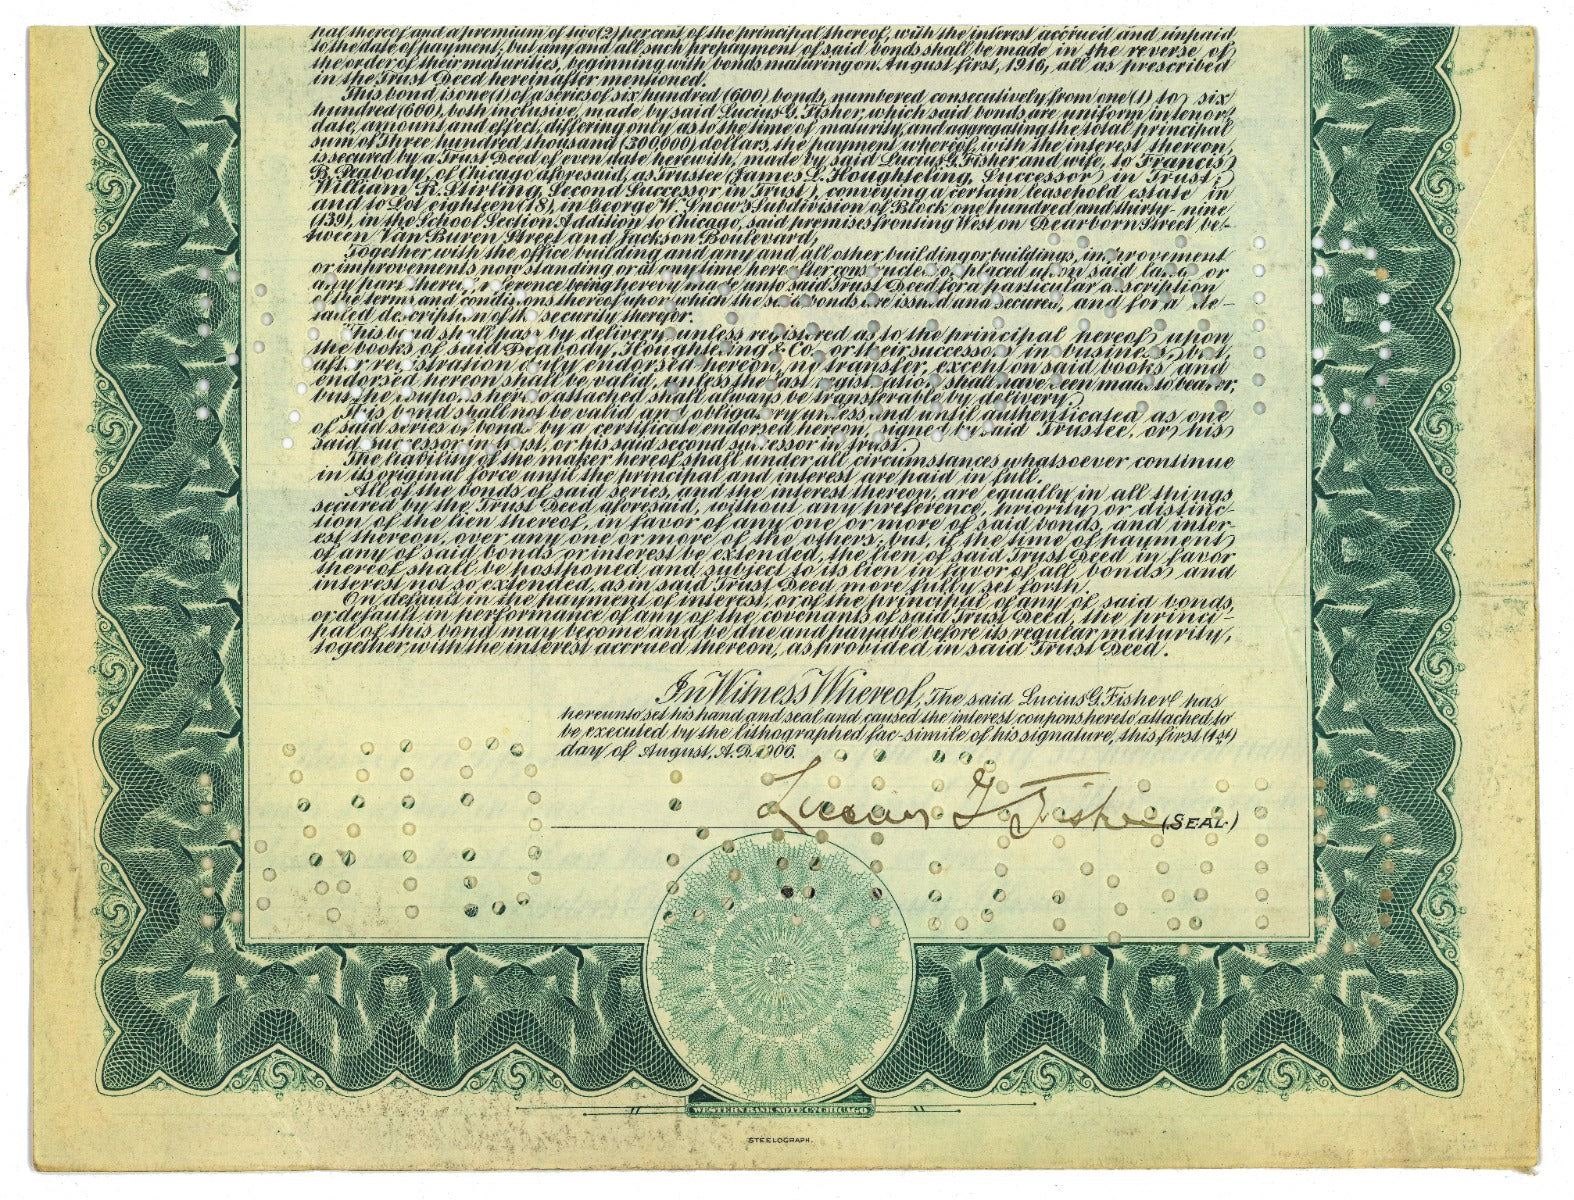 pal thereof and a premium of two (2) per cent of the principal thereof, with the interest accrued and unpaid
to the date of payment, but any and all such prepayment of said bonds shall be made in the reverse of
the order of their maturities, beginning with bonds maturing on August first, 1916, all as prescribed
in the Trust Deed hereinafter mentioned.
This bond is one (1) of a series of six hundred (600) bonds, numbered consecutively from one (1) to six
hundred (600), both inclusive, made by said Lucius G. Fisher, which said bonds are uniform in tenor,
date, amount and effect, differing only as to the time of maturity, and aggregating the total principal
sum of Three hundred thousand (300,000) dollars, the payment whereof, with the interest thereon,
is secured by a Trust Deed of even date herewith, made by said Lucius G. Fisher and wife, to Francis
B. Peabody, of Chicago aforesaid, as Trustee (James L. Houghteling, Successor in Trust;
William R. Stirling, Second Successor in Trust), conveying a certain leasehold estate in
and to Lot eighteen (18), in George W. Snow's Subdivision of Block one hundred and thirty-nine
(139), in the School Section Addition to Chicago, said premises fronting West on Dearborn Street bet-
tween Van Buren Street and Jackson Boulevard;
Together with the office building and any and all other building or buildings, improvement
or improvements now standing or at any time hereafter constructed or placed upon said land, or
any part thereof, reference being hereby made unto said Trust Deed for a particular description
of the terms and conditions thereof upon which the said bonds are issued and secured, and for a de-
tailed description of the security therefor.
This bond shall pass by delivery, unless registered as to the principal hereof, upon
the books of said Peabody, Houghteling & Co., or their successors in business, but,
after registration duly endorsed hereon, no transfer, except on said books and
endorsed hereon shall be valid, unless the last registration shall have been made to bearer;
but the coupons hereto attached shall always be transferable by delivery.
This bond shall not be valid and obligatory unless and until authenticated as one
of said series of bonds by a certificate endorsed hereon, signed by said Trustee, or his
said successor in trust, or his said second successor in trust.
The liability of the maker hereof shall under all circumstances whatsoever continue
in its original force until the principal and interest are paid in full.
All of the bonds of said series, and the interest thereon, are equally in all things
secured by the Trust Deed aforesaid, without any preference, priority or distinc-
tion of the lien thereof, in favor of any one or more of said bonds, and inter-
est thereon, over any one or more of the others; but, if the time of payment
of any of said bonds or interest be extended, the lien of said Trust Deed in favor
thereof shall be postponed and subject to its lien in favor of all bonds and
interest not so extended, as in said Trust Deed more fully set forth.
On default in the payment of interest, or of the principal of any of said bonds,
or default in performance of any of the covenants of said Trust Deed, the princi-
pal of this bond may become and be due and payable before its regular maturity,
together with the interest accrued thereon, as provided in said Trust Deed.
In Witness Whereof, The said Lucius G. Fisher has
hereunto set his hand and seal and caused the interest coupons hereto attached to
be executed by the lithographed fac-simile of his signature, this first (1st)
day of August, A.D. 1906.
Lucius G. Fisher (SEAL.)
WESTERN BANK NOTE CO. CHICAGO
STEELOGRAPH.